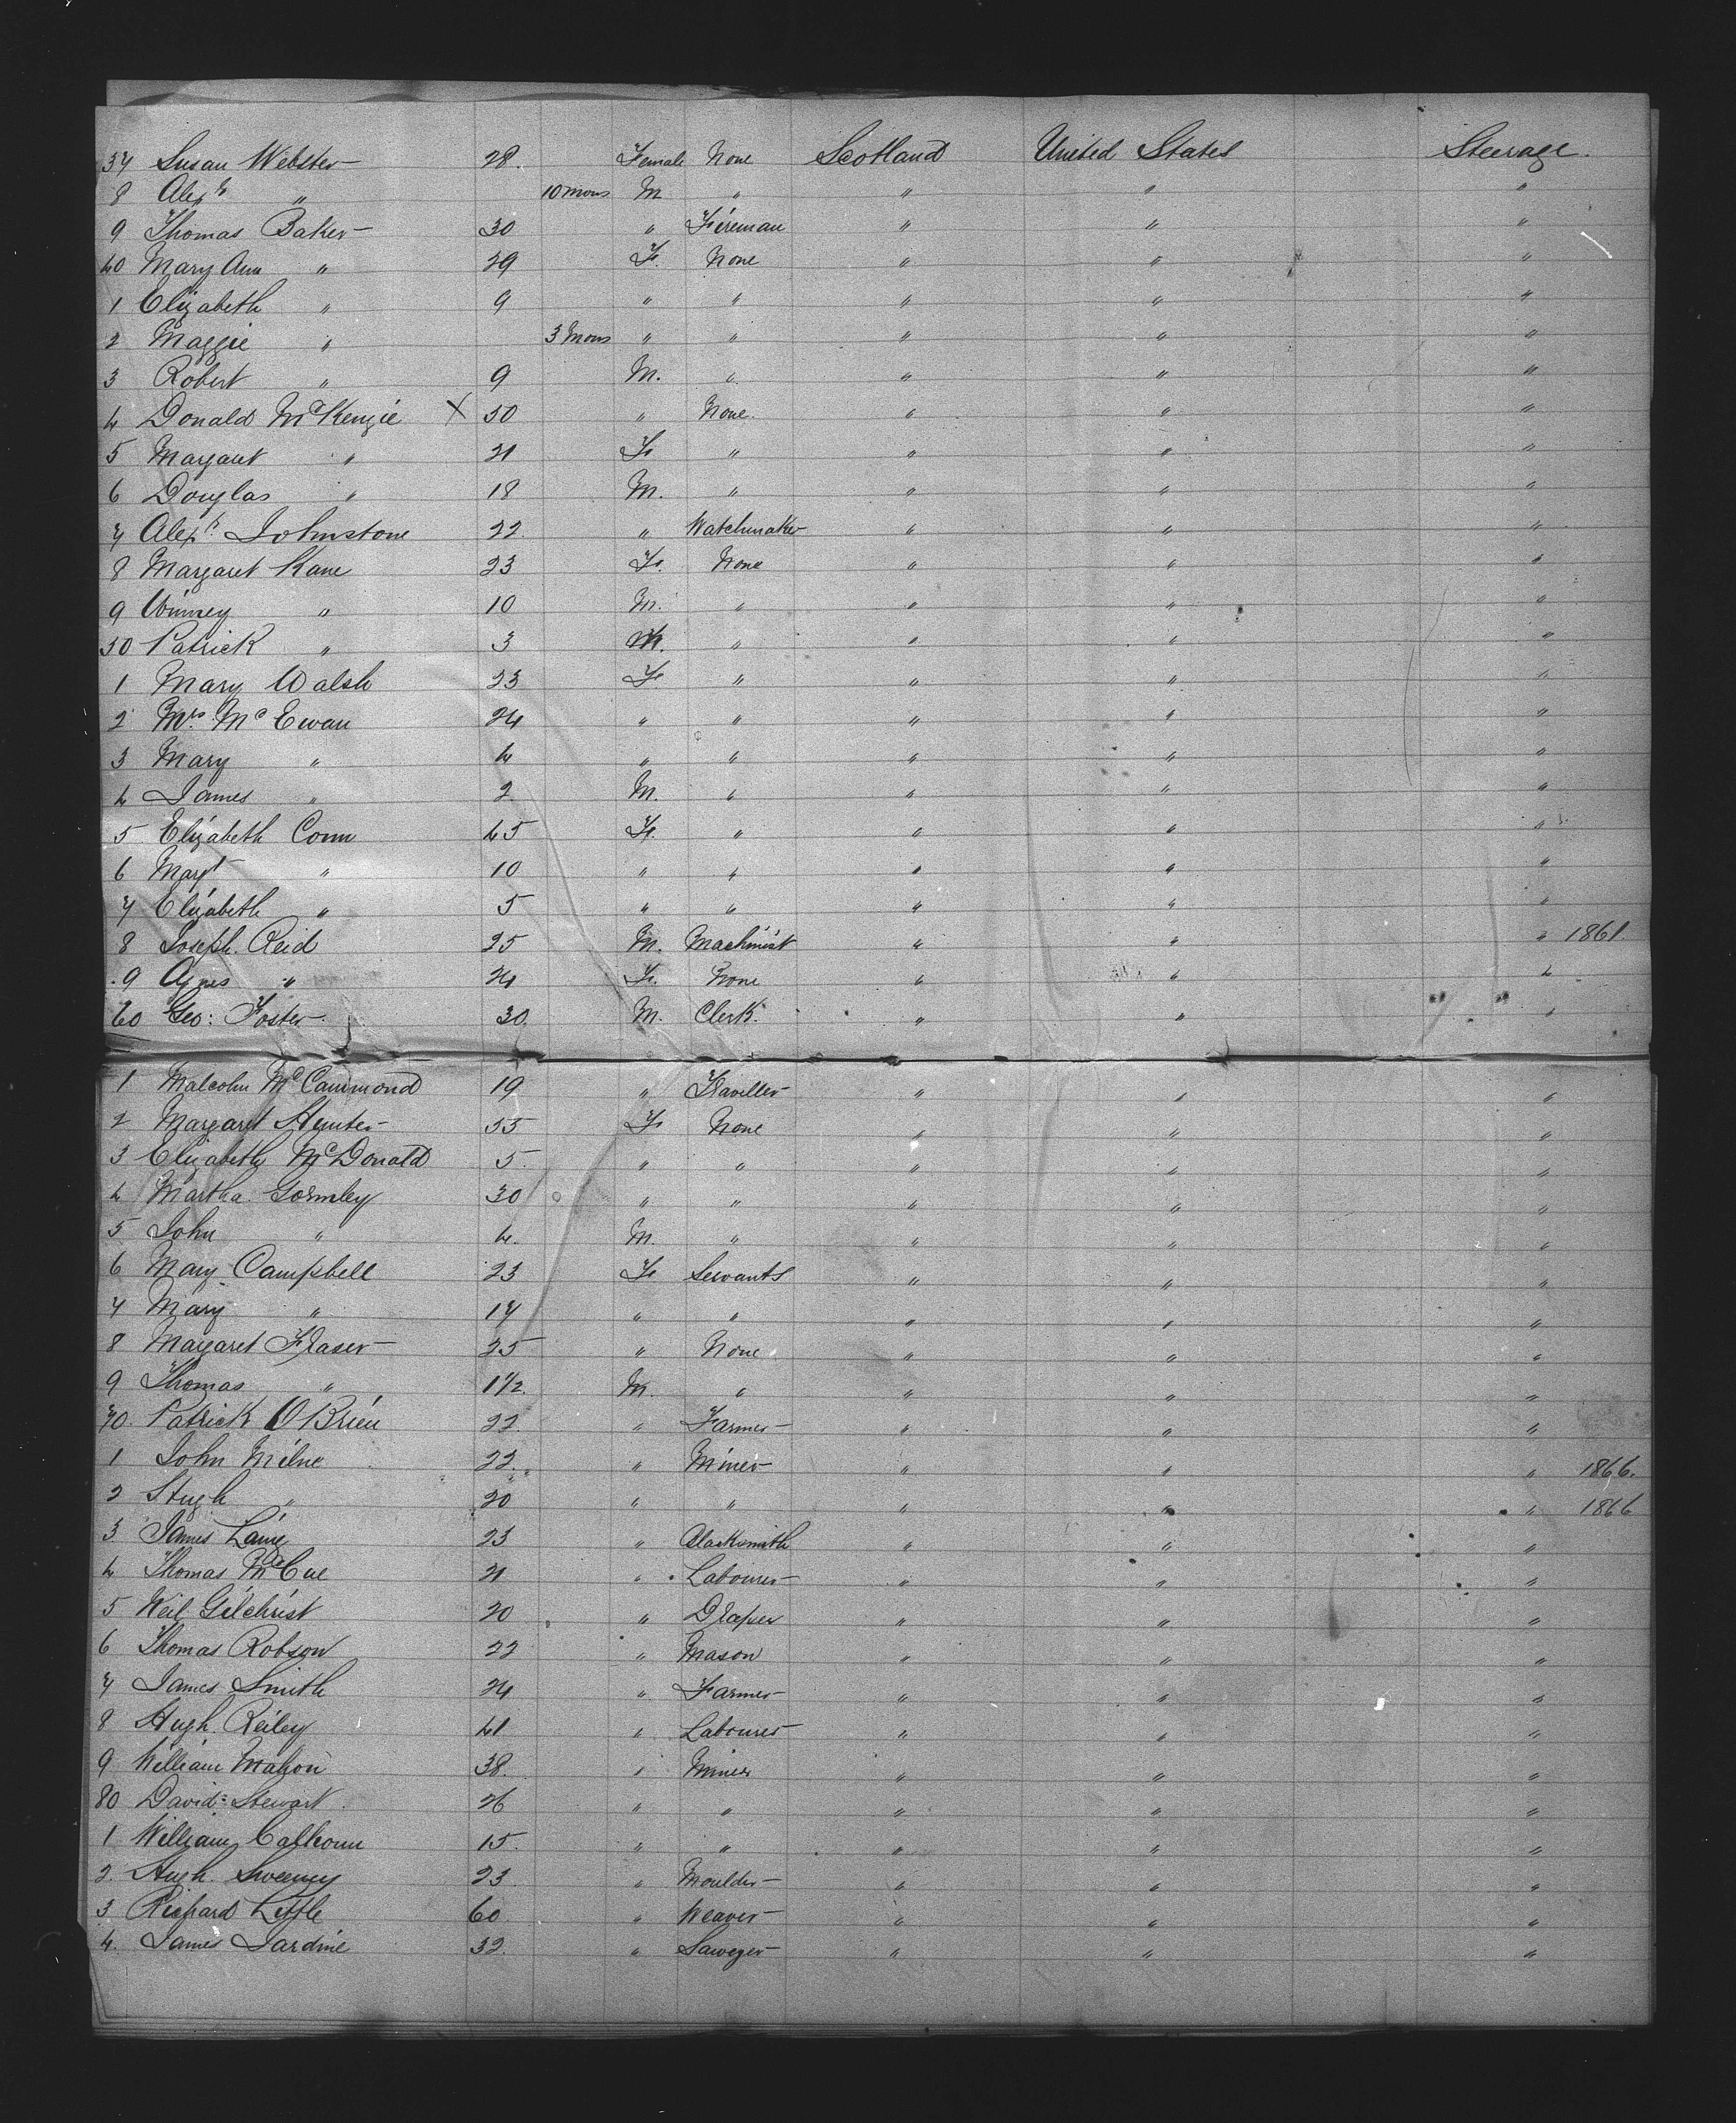 37 Susan Webster 28. Female None Scotland United States Steerage.
8 Alexr " 10 mons M " " " "
9 Thomas Baker 30 " Fireman " " "
40 Mary Ann " 29 F. None " " "
1 Elizabeth " 9 " " " " "
2 Maggie " 3 Mons " " " " "
3 Robert " 9 M. " " " "
4 Donald McKenzie X 50 " None. " " "
5 Margaret " 21 F. " " " "
6 Douglas " 18 M. " " " "
7 Alexr. Johnstone 22. " Watchmaker " " "
8 Margaret Kane 23 F. None " " "
9 Winney " 10 M. " " " "
50 Patrick " 3 M. " " " "
1 Mary Walsh 23 F " " " "
2 Mrs. McEwan 24 " " " " "
3 Mary " 4 " " " " "
4 James " 2. M. " " " "
5 Elizabeth Conn 45 F. " " " "
6 Margt " 10 " " " " "
7 Elizabeth " 5 " " " " "
8 Joseph. Reid 25 M. Machinist " " " 1861.
9 Agnes " 24 F. None " " "
60 Geo: Foster 30. M. Clerk. " " "
1 Malcolm McCammond 19 " Traveller " " "
2 Margaret Hunter 55 F None " " "
3 Elizabeth McDonald 5. " " " " "
4 Martha Gormley 30 " " " " "
5 John " 4. M. " " " "
6 Mary Campbell 23 F Servants " " "
7 Mary " 17 " " " " "
8 Margaret Fraser 25 " None " " "
9 Thomas " 1 1/2. M. " " " "
70. Patrick O'Brien 22. " Farmer " " "
1 John Milne 22. " Miner " " " 1866.
2 Hugh " 20 " " " " " 1866
3. James Laing 23 " Blacksmith " " "
4 Thomas McCue 21 " Labourer " " "
5 Neil Gilchrist 20 " Draper " " "
6 Thomas Robson 22 " Mason " " "
7 James Smith 24 " Farmer " " "
8 Hugh. Reiley 41 " Labourer " " "
9 William Mahon 38. " Miner " " "
80 David Stewart 26 " " " " "
1 William Calhoun 15. " " " " "
2. Hugh. Sweeney 23 " Moulder " " "
3 Richard Little 60 " Weaver " " "
4. James Jardine 32. " Saweyer " " "